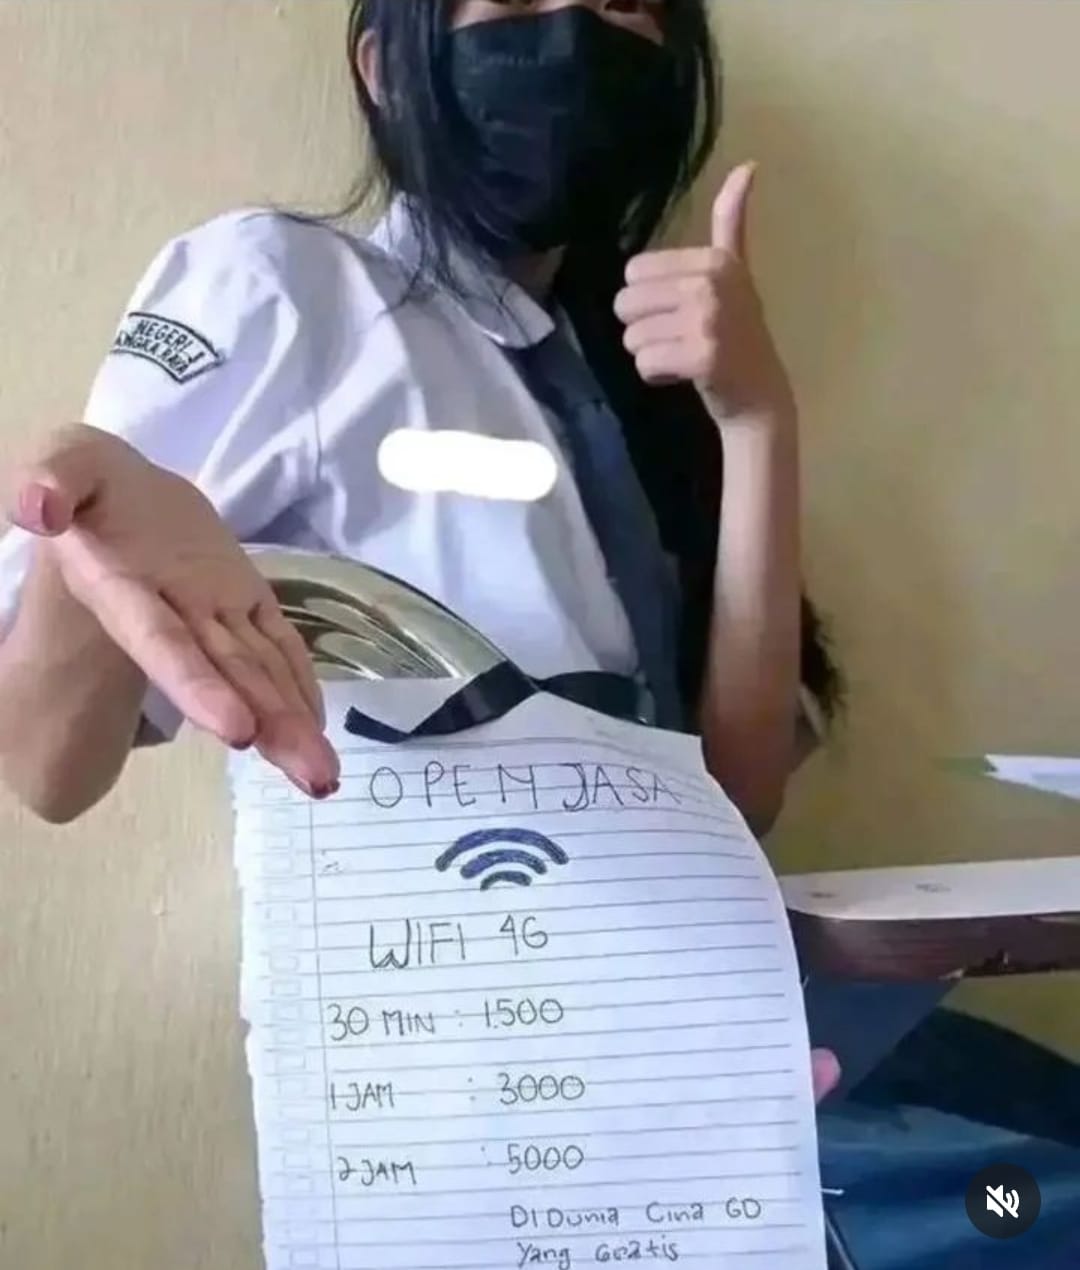 NEGERI
OPEN JASA
WIFI 4G
30 MIN : 1.500
1 JAM : 3000
2 JAM : 5000
DI Dunia Cina GD
Yang Gratis